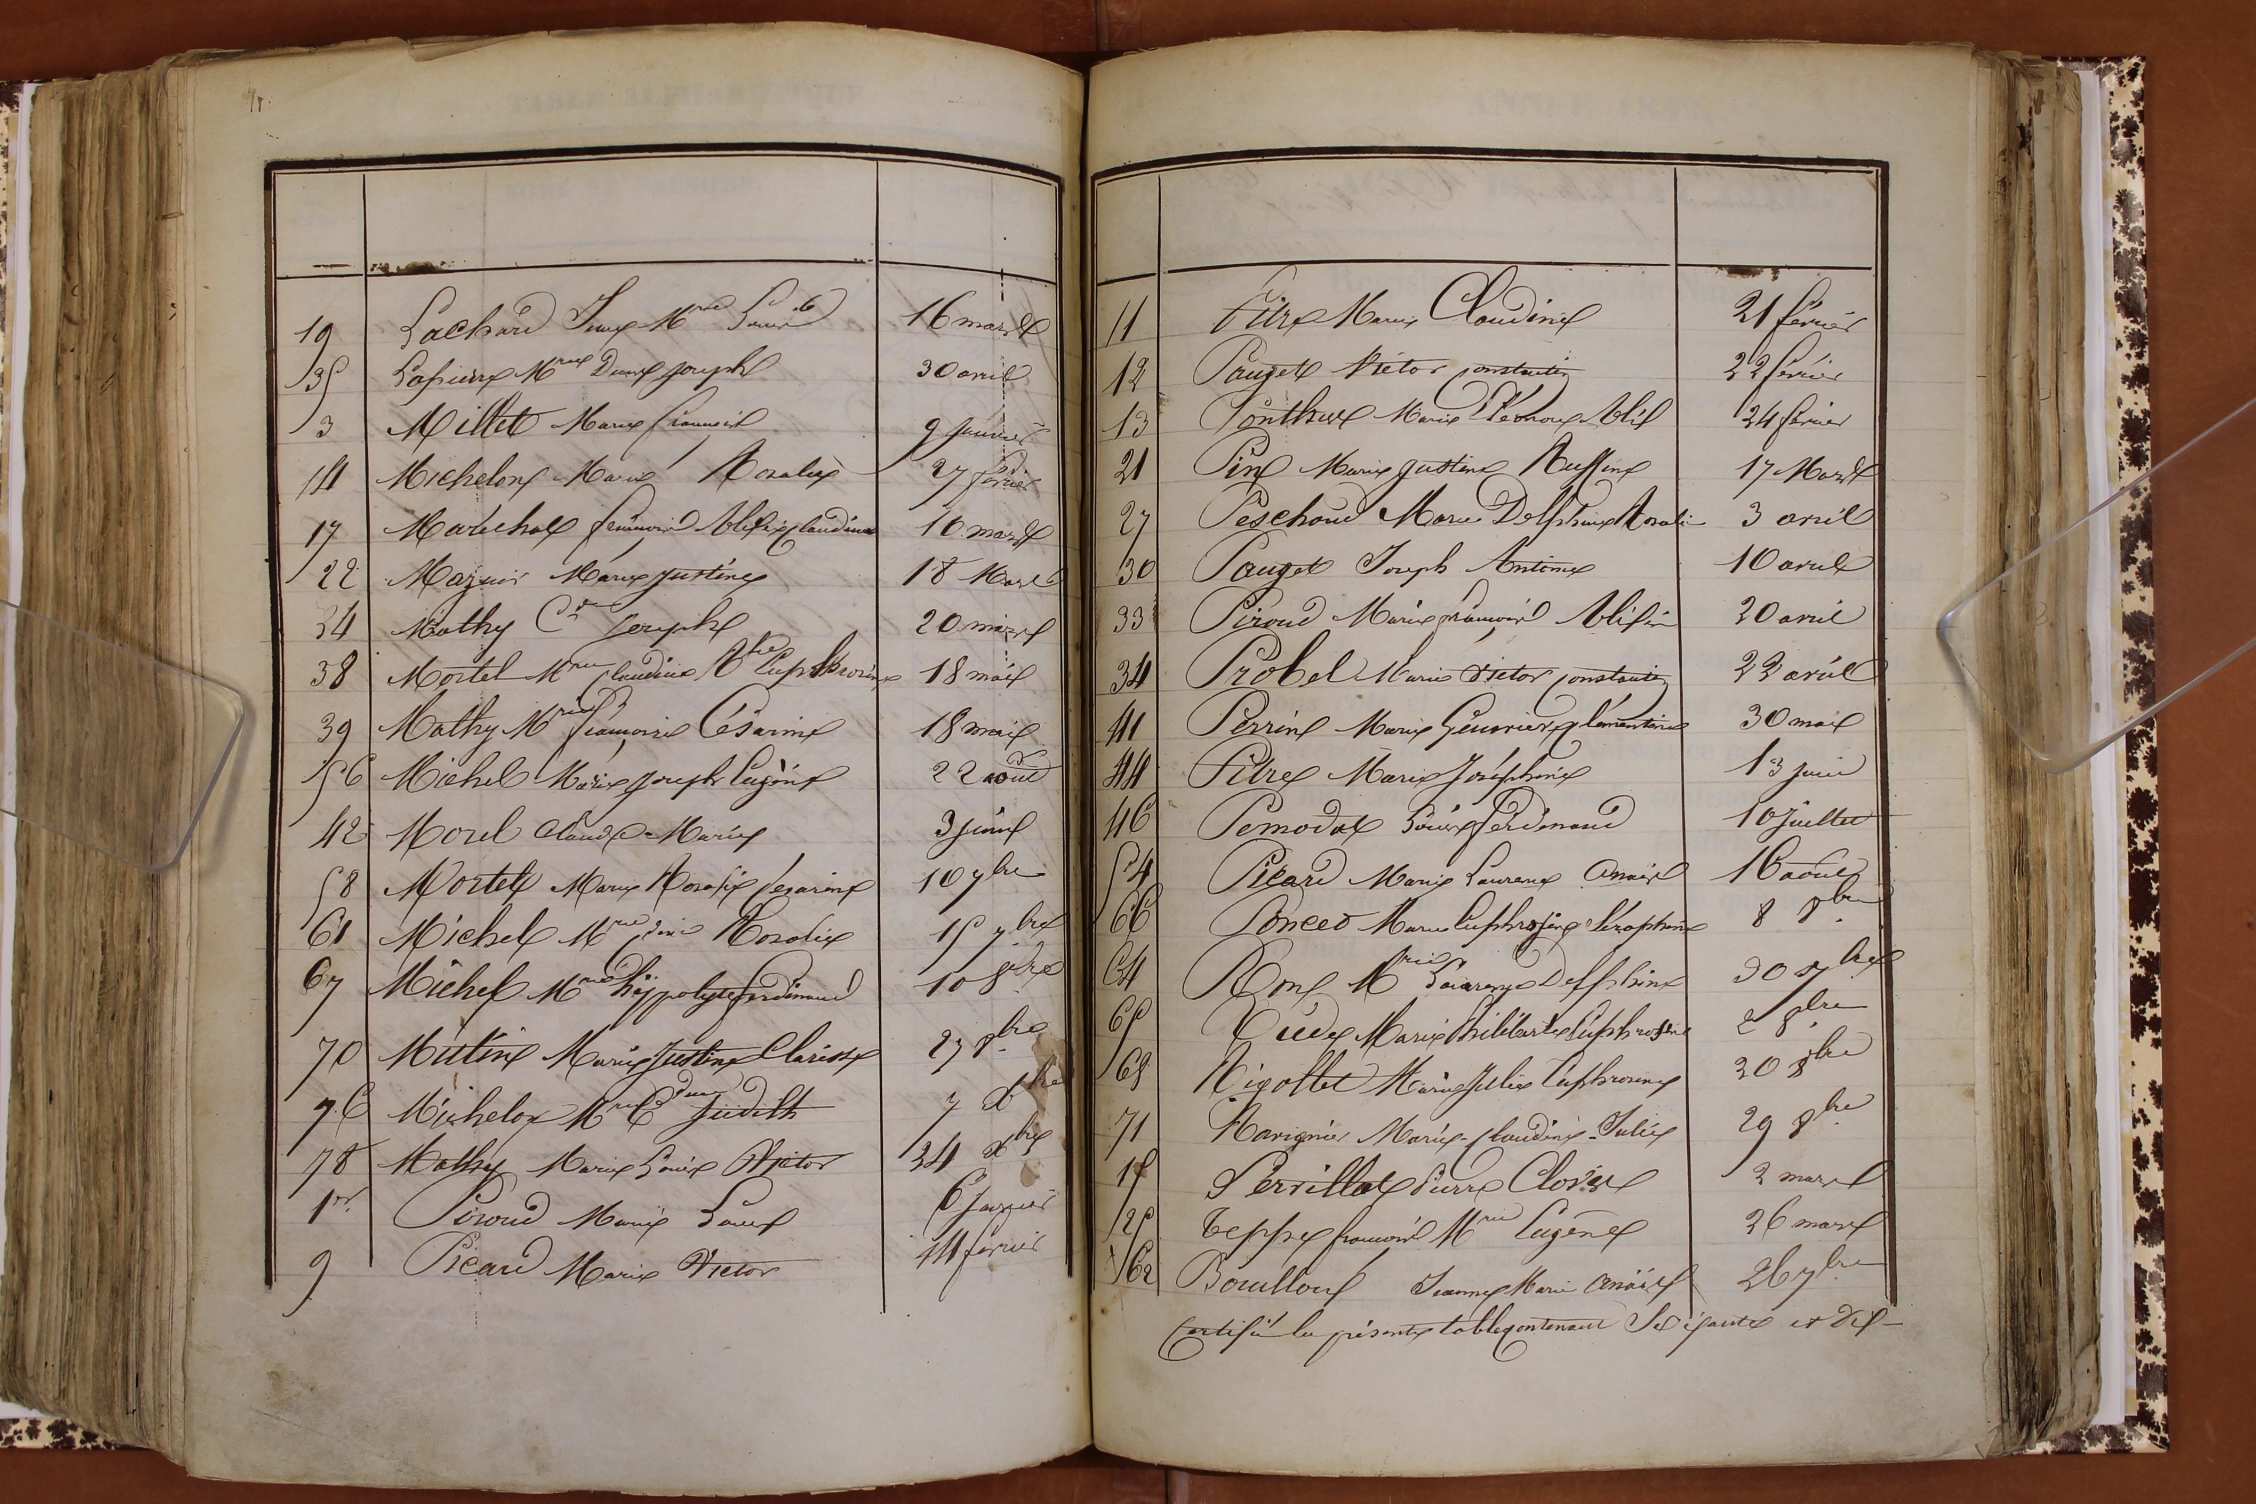 19 Lachard Mrie 16 mars
35 Lapierre Mrie Joseph 30 avril
3 Millet Marie françois 9 janvier
14 Michelon Marie Rosalie 27 février
17 Maréchal françois Claudine 10 mars
22 Marie Justine 18 Mars
24 Mathy Joseph 20 mars
38 Mortel Mrie Claudine Euphrosine 18 mai
39 Mathy Mrie françoise Césarine 18 mai
56 Michel Marie Joseph Eugène 22 août
42 Morel Claude-Marie 3 juin
58 Mortel Marie Rosalie Césarine 10 7bre
61 Michel Mrie Rosalie 15 7bre
67 Michel Mrie hippolyte ferdinand 10 8bre
70 Mutin Marie Justine Clarisse 27 8bre
76 Michelon Mrie Judith 7 Xbre
78 Mathy Marie Louis Victor 24 Xbre
1er Piroud Marie Louis 6 Janvier
9 Picard Marie Victor 14 février
11 Pitre Marie Claudine 21 février
12 Pauget Victor Constantin 22 février
13 Ponthus Marie Eléonore 24 février
21 Pin Marie Justine Ruffine 17 Mars
27 Peschoud Marie Delphine Rosalie 3 avril
30 Pauget Joseph Antoine 10 avril
33 Piroud Marie françois 20 avril
34 Probel Marie Victor Constantin 22 avril
41 Perrin Marie Clémentine 30 mai
44 Pitre Marie Joséphine 13 juin
46 Pernodat Louis ferdinand 10 juillet
54 Picard Marie Laurence Anaïs 16 août
66 Poncet Marie Euphrosine Séraphine 8 8bre
64 Mrie Delphine 30 7bre
65 Marie Euphrosine 2 8bre
68 Rigollet Marie Julie Euphrosine 20 8bre
71 Ravignier Marie-Claudine-Julie 29 8bre
15 Servillat Pierre Clovis 2 mars
25 Teppe françois Mrie Eugène 26 mars
62 Bouilloux Jeanne Marie Anaïs 26 7bre
Certifié la présente table contenant Soixante et dix-